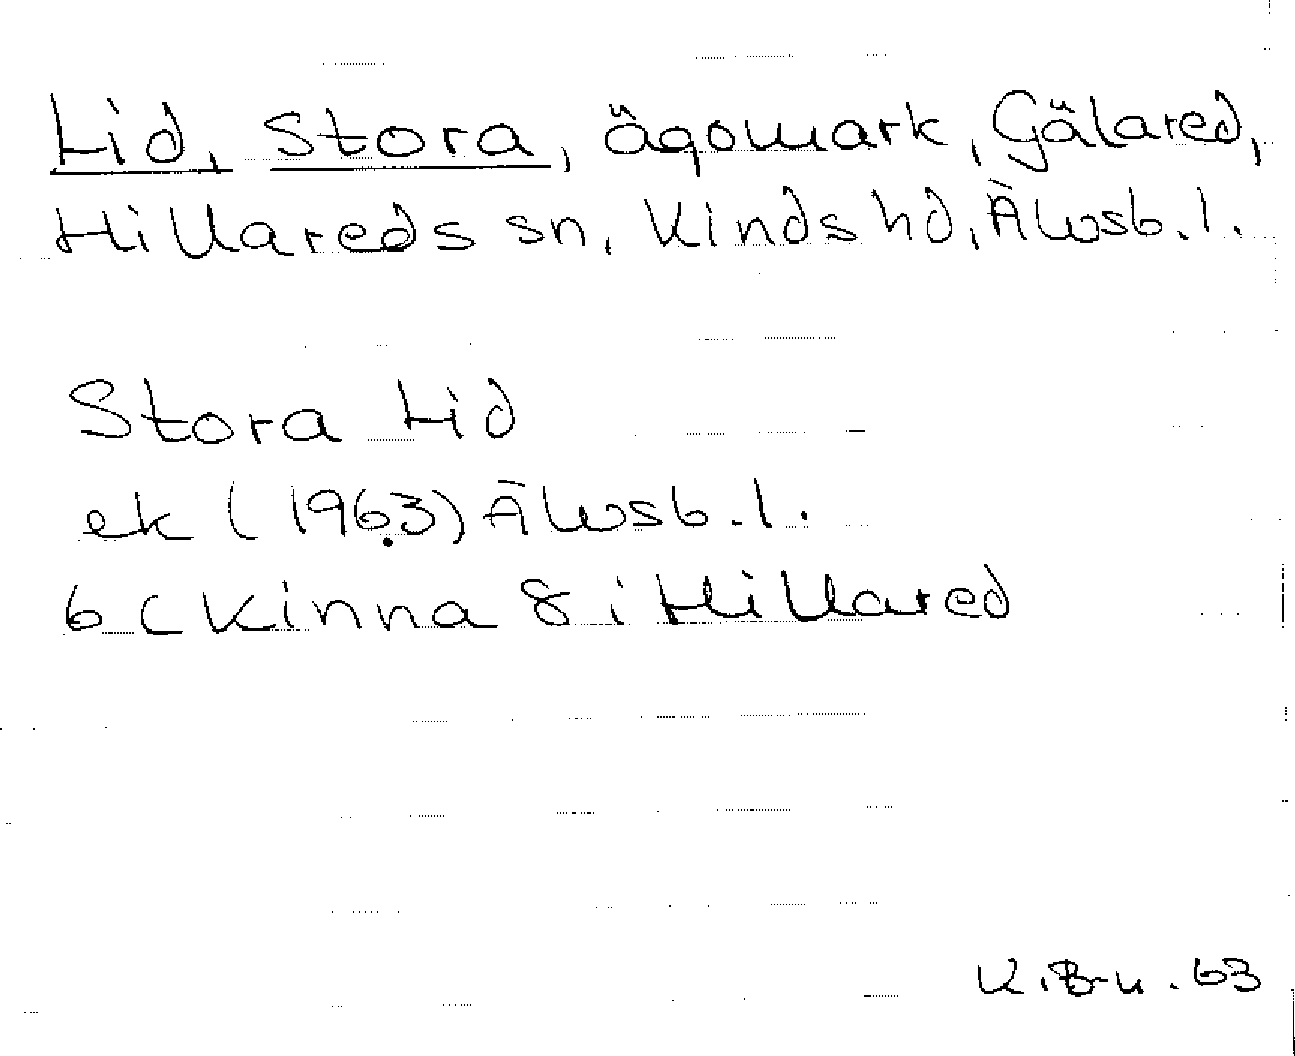 Lid, Stora, ägomark, Gälared,
Hillareds sn, Kinds hd, Älvsb. l.
Stora Lid
ek (1963) Älvsb. l.
6 C Kinna 8 i Hillared
K. B-u. 63